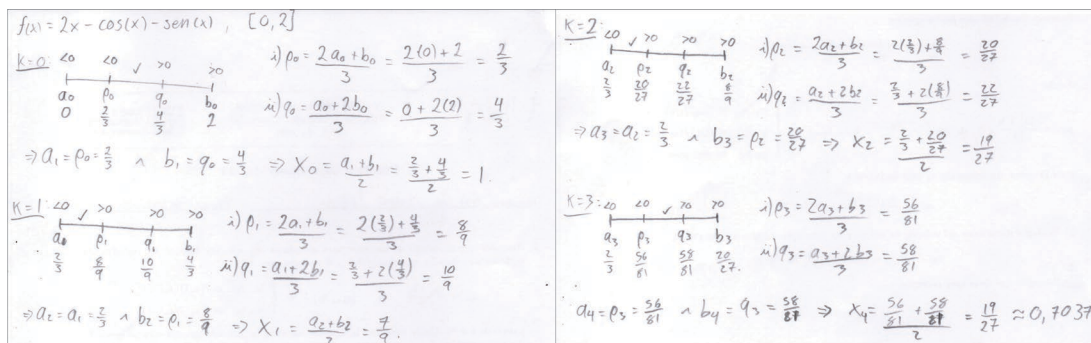 f(x) = 2x - cos(x) - sen(x) , [0,2]
K=0:
<0 <0 ✓ >0 >0
a₀ ρ₀ q₀ b₀
0 2/3 4/3 2
i) ρ₀ = (2a₀+b₀)/3 = (2(0)+2)/3 = 2/3
ii) q₀ = (a₀+2b₀)/3 = (0+2(2))/3 = 4/3
⇒ a₁ = ρ₀ = 2/3 ∧ b₁ = q₀ = 4/3 ⇒ x₀ = (a₁+b₁)/2 = (2/3+4/3)/2 = 1.
K=1:
<0 ✓ >0 >0 >0
ρ₁ q₁ b₁
2/3 8/9 10/9 4/3
i) ρ₁ = (2a₁+b₁)/3 = (2(2/3)+4/3)/3 = 8/9
ii) q₁ = (a₁+2b₁)/3 = (2/3+2(4/3))/3 = 10/9
⇒ a₂ = a₁ = 2/3 ∧ b₂ = ρ₁ = 8/9 ⇒ x₁ = (a₂+b₂)/2 = 7/9.
K=2:
<0 ✓ >0 >0 >0
a₂ ρ₂ q₂ b₂
2/3 20/27 22/27 8/9
i) ρ₂ = (2a₂+b₂)/3 = (2(2/3)+8/9)/3 = 20/27
ii) q₂ = (a₂+2b₂)/3 = (2/3+2(8/9))/3 = 22/27
⇒ a₃ = a₂ = 2/3 ∧ b₃ = ρ₂ = 20/27 ⇒ x₂ = (2/3+20/27)/2 = 19/27
K=3:
<0 <0 ✓ >0 >0
a₃ ρ₃ q₃ b₃
2/3 56/81 58/81 20/27.
i) ρ₃ = (2a₃+b₃)/3 = 56/81
ii) q₃ = (a₃+2b₃)/3 = 58/81
a₄ = ρ₃ = 56/81 ∧ b₄ = q₃ = 58/81 ⇒ x₄ = (56/81+58/81)/2 = 19/27 ≈ 0,7037